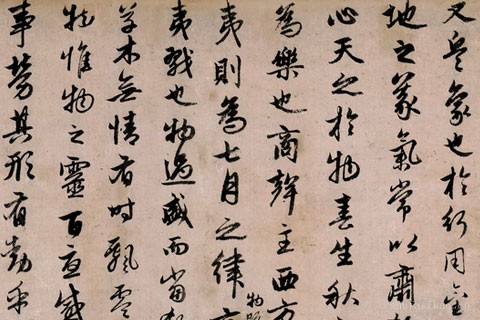 又兵象也於行用金
地之義氣常以肅
心天之於物春生秋
為樂也商聲主西方
夷則為七月之律
物既
夷戮也物過盛而當殺
草木無情有時飄零
物惟物之靈百憂感
事勞其形有動乎